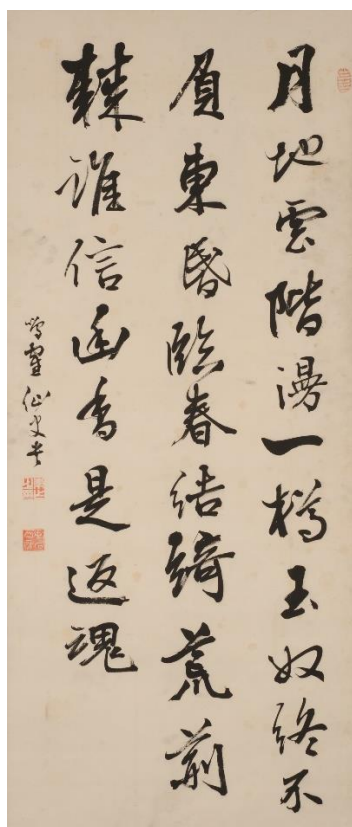 月地雲階漫一樽玉奴終不
負東昏臨春結綺荒荊
棘誰信幽香是返魂
仙史書